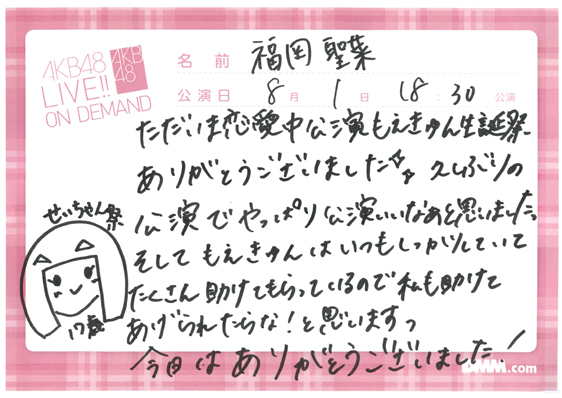 AKB48
LIVE!!
ON DEMAND
AKB
48
名前 福岡聖菜
公演日 8月 1日 18:30 公演
ただいま恋愛中公演もえきゅん生誕祭
ありがとうございました☆☆ 久しぶりの
公演でやっぱり公演いいなあと思いましたっ
そしてもえきゅんはいつもしっかりしていて
たくさん助けてもらっているので私も助けて
あげられたらな!と思いますっ
今日はありがとうございました!
せいちゃん祭
17歳
DMM.com